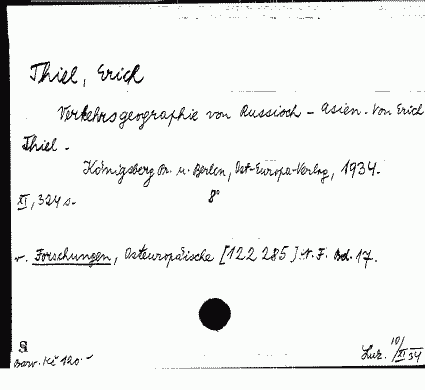 Thiel, Erich
Verkehrsgeographie von Russisch - Asien. Von Erich
Thiel.
Königsberg Pr. u. Berlin, Ost-Europa-Verlag, 1934.
XI, 324 s. 8°
v. Forschungen, Osteuropäische [122 285] N. F. Bd. 17.
S
10/XI 34